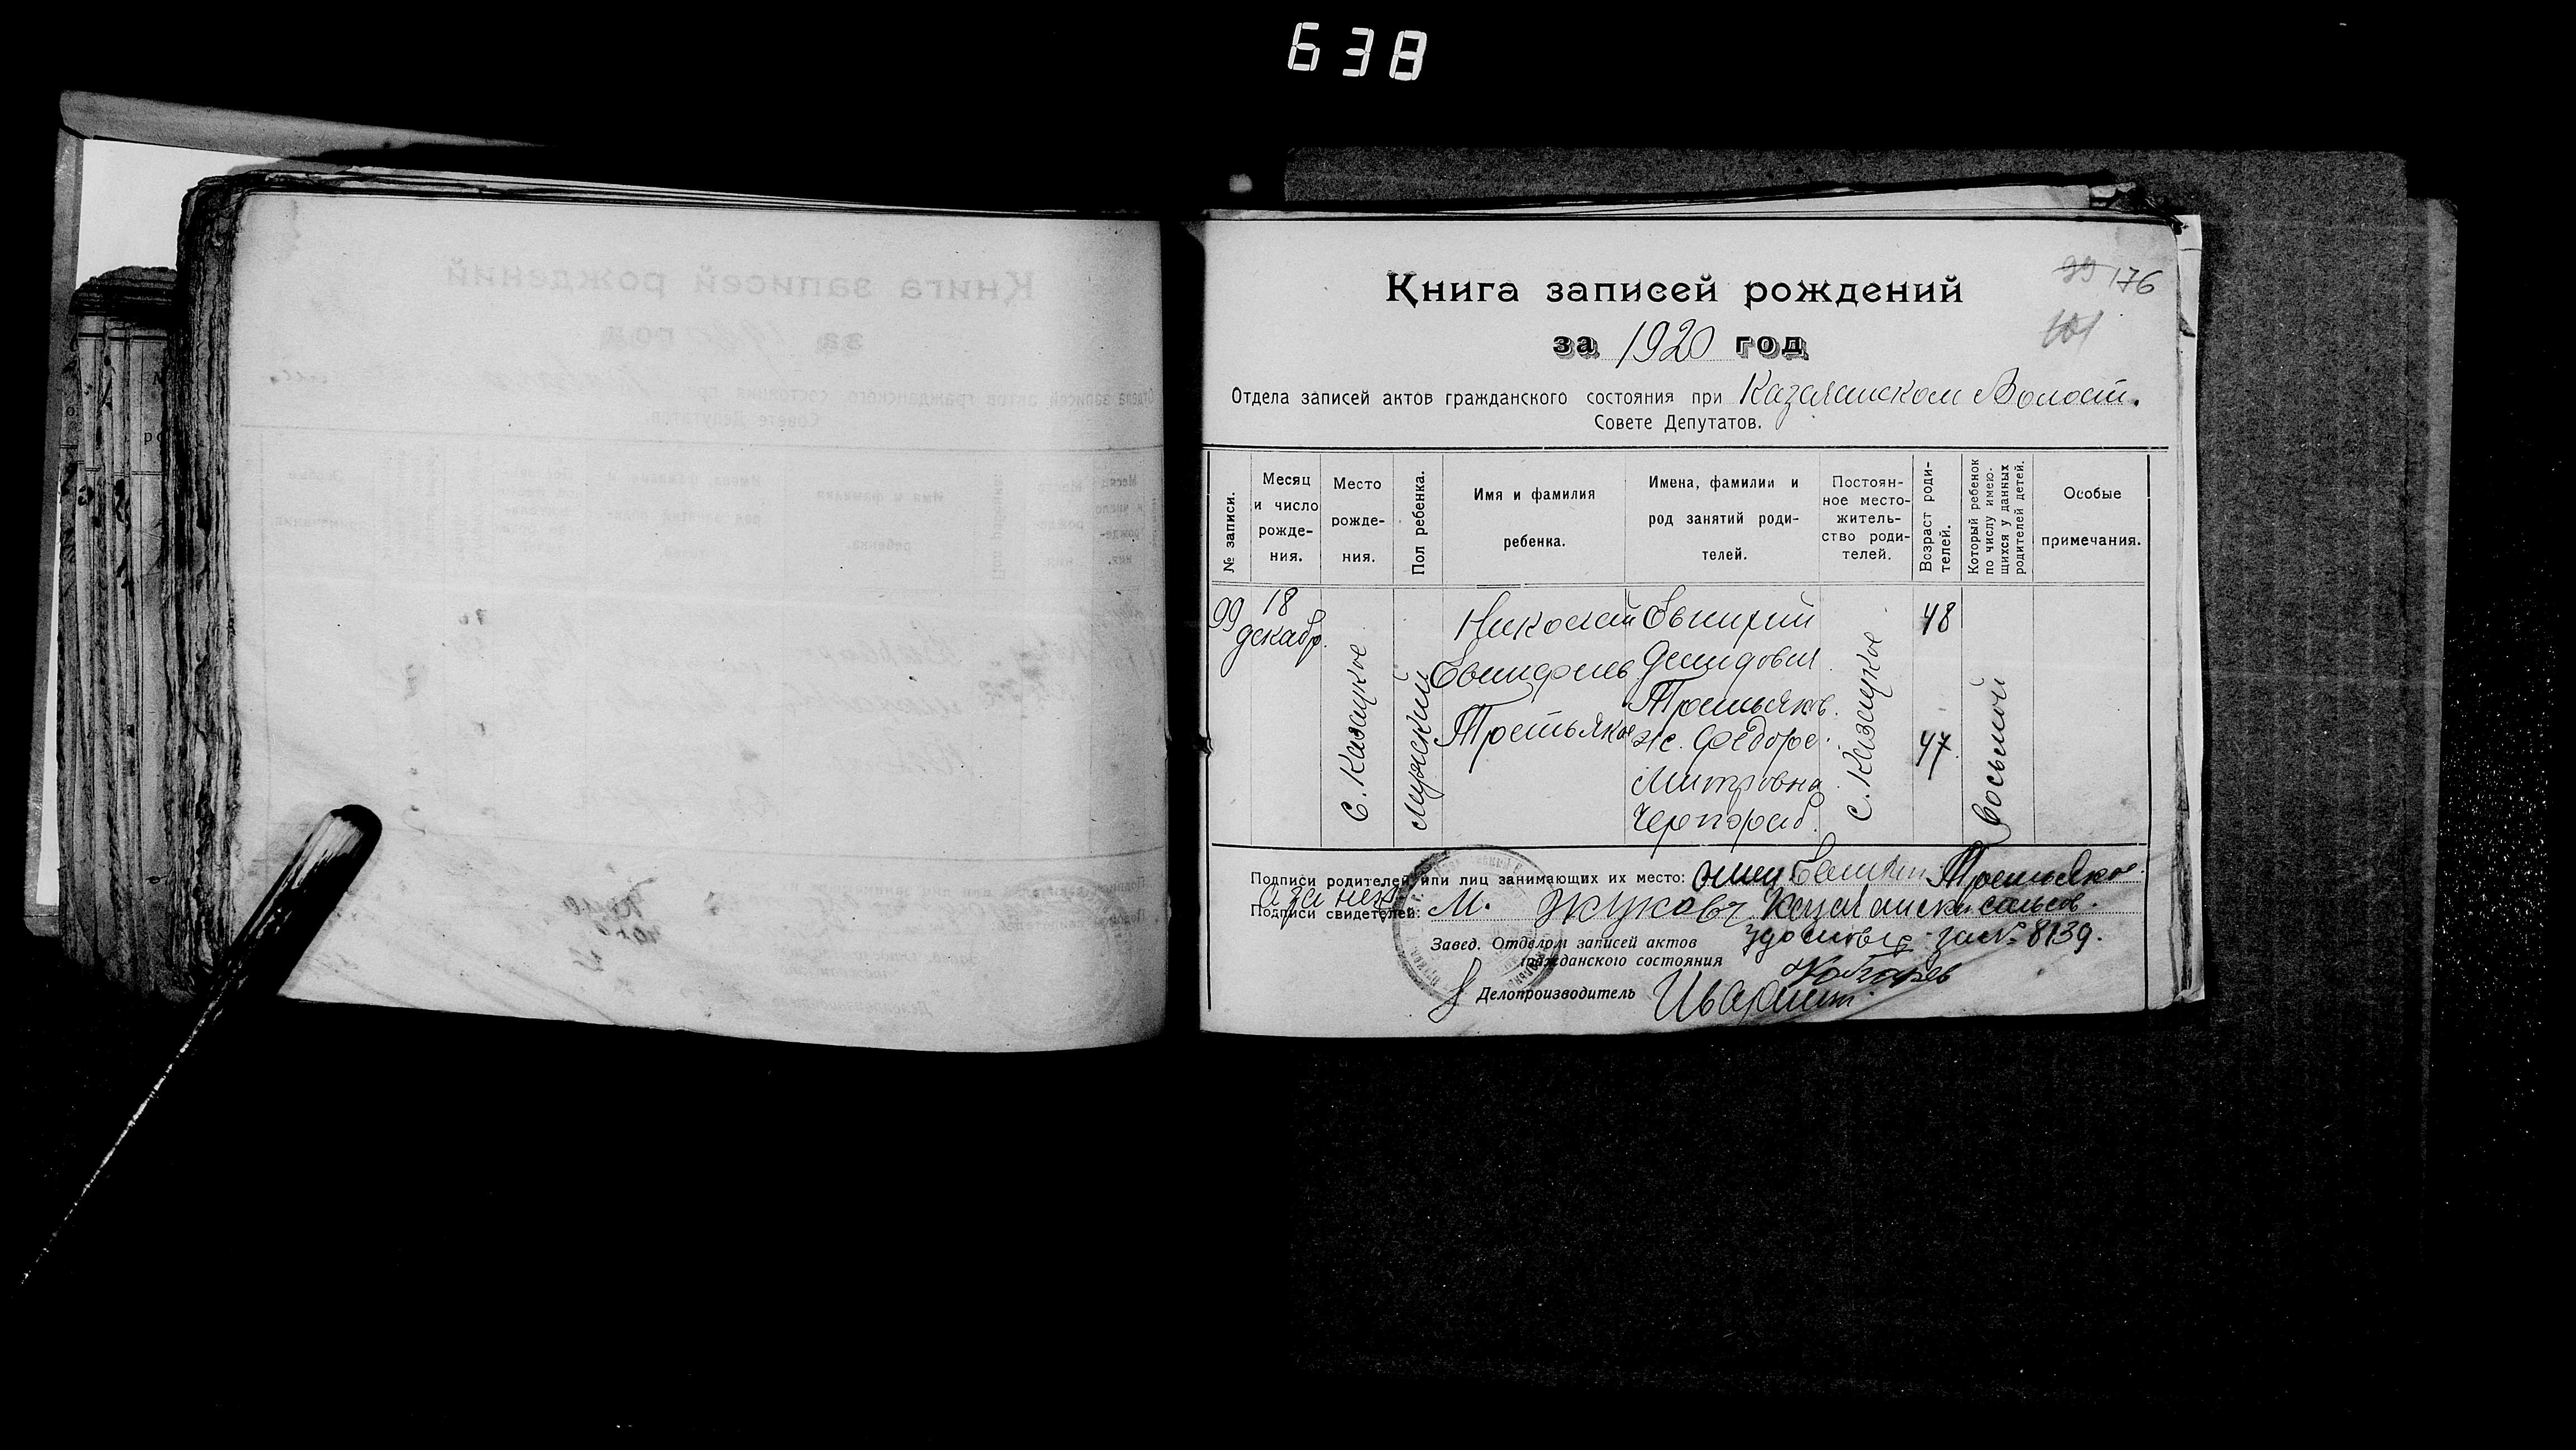 638
99 176
101
Книга записей рождений
за 1920 год
Отдела записей актов гражданского состояния при Казачанском Волост.
Совете Депутатов.
№ записи.
Месяц и число рожде-ния.
Место рожде-ния.
Пол ребенка.
Имя и фамилия ребенка.
Имена, фамилии и род занятий роди-телей.
Постоян-ное место-житель-ство роди-телей.
Возраст роди-телей.
Который ребенок по числу имею-щихся у данных родителей детей.
Особые примечания.
99
18
декабр.
с. Казацкое
мужский
Николай
Третьяков
Демидович
Третьяков.
ж. Федора.
Митровна
с. Казацкое
48
47
восьмой
Подписи родителей или лиц занимающих их место: отец Третьяков
а за нег
Подписи свидетелей: М. Жуковъ
Завед. Отделом записей актов
гражданского состояния
за № 8139.
Делопроизводитель